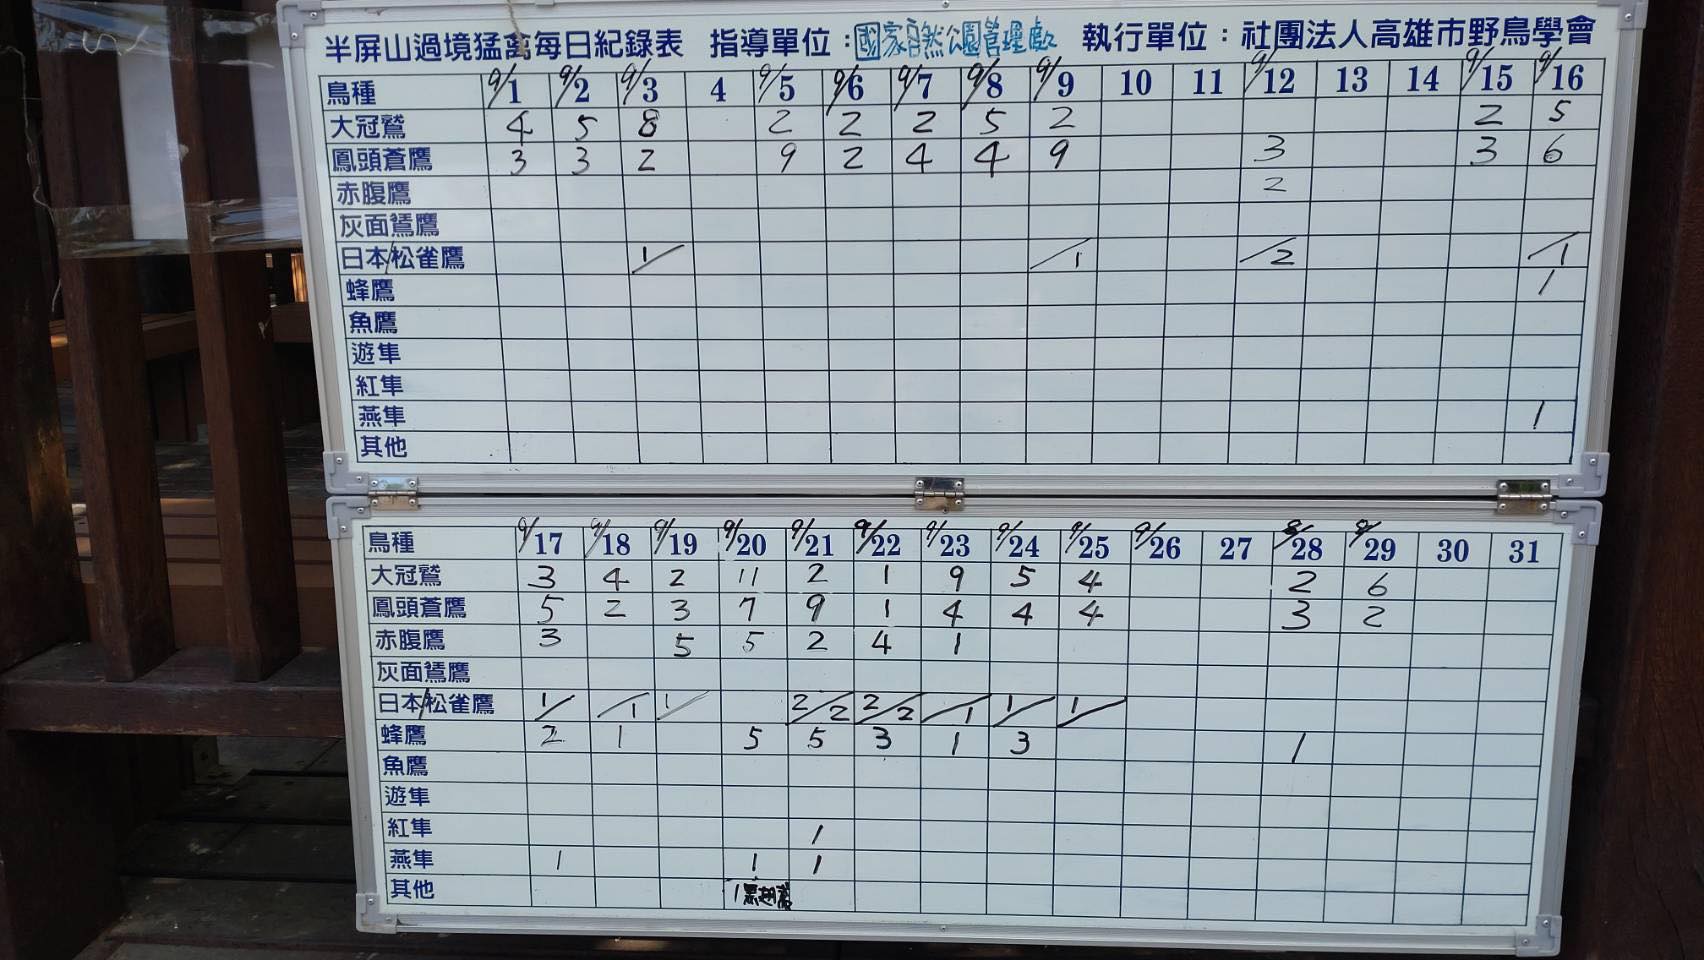 半屏山過境猛禽每日紀錄表 指導單位:國家自然公園管理處 執行單位:社團法人高雄市野鳥學會
鳥種 9/1 9/2 9/3 4 9/5 9/6 9/7 9/8 9/9 10 11 9/12 13 14 9/15 9/16
大冠鷲 4 5 8 2 2 2 5 2 2 5
鳳頭蒼鷹 3 3 2 9 2 4 4 9 3 3 6
赤腹鷹 2
灰面鵟鷹
日本/松雀鷹 1/ /1 /2 /1
蜂鷹 1
魚鷹
遊隼
紅隼
燕隼 1
其他
鳥種 9/17 9/18 9/19 9/20 9/21 9/22 9/23 9/24 9/25 9/26 27 28 29 30 31
大冠鷲 3 4 2 11 2 1 9 5 4 2 6
鳳頭蒼鷹 5 2 3 7 9 1 4 4 4 3 2
赤腹鷹 3 5 5 2 4 1
灰面鵟鷹
日本/松雀鷹 1/ /1 1/ 2/2 2/2 /1 1/ 1/
蜂鷹 2 1 5 5 3 1 3 1
魚鷹
遊隼
紅隼 1
燕隼 1 1 1
其他 1黑翅鳶